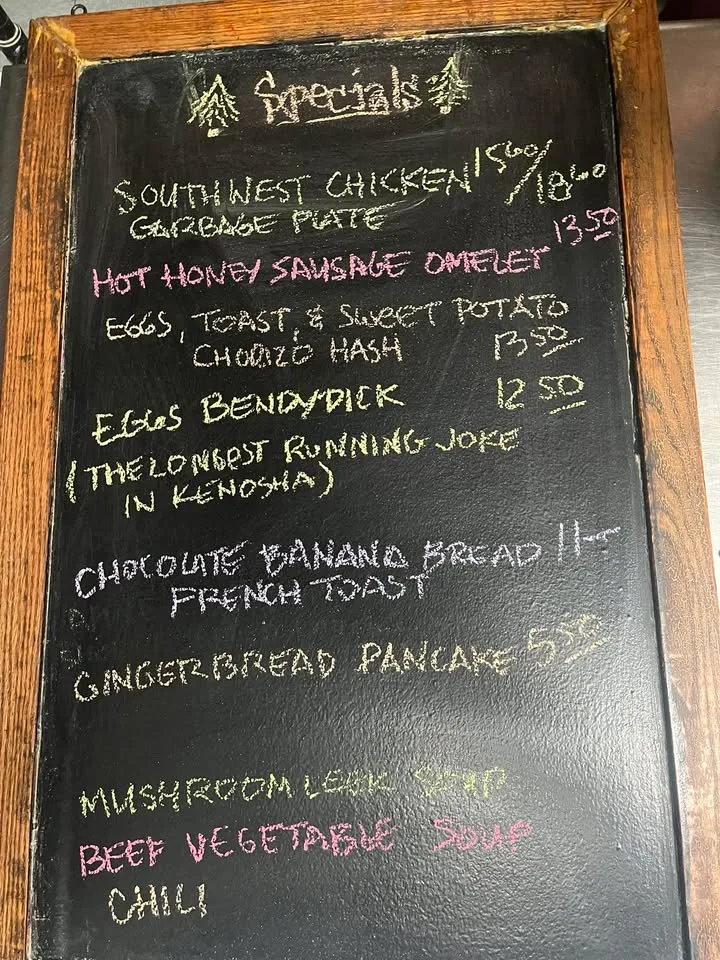 Specials
SOUTHWEST CHICKEN 15⁶⁰/18⁶⁰
GARBAGE PLATE
HOT HONEY SAUSAGE OMELET 13⁵⁰
EGGS, TOAST, & SWEET POTATO
CHORIZO HASH 13⁵⁰
EGGS BENDYDICK 12⁵⁰
(THE LONGEST RUNNING JOKE
IN KENOSHA)
CHOCOLATE BANANA BREAD 11-
FRENCH TOAST
GINGERBREAD PANCAKE 5⁵⁰
MUSHROOM LEEK SOUP
BEEF VEGETABLE SOUP
CHILI